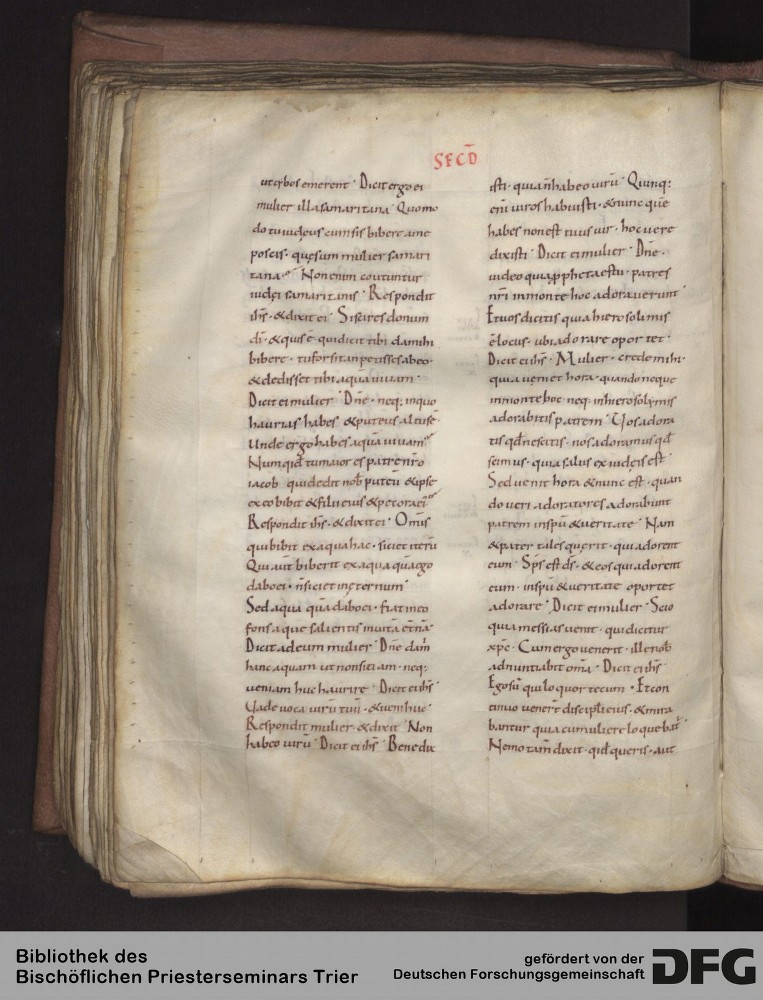 SECD̄
ut cybos emerent · Dicit ergo ei
mulier illa samaritana · Quomo
do tu iudęus cum sis bibere a me
poscis · quę sum mulier samari
tana · Non enim coutuntur
iudęi samaritanis · Respondit
ih̄s · & dixit ei · Si scires donum
dī · & quis ē qui dicit tibi da mihi
bibere · tu forsitan petisses ab eo ·
& dedisset tibi aquā uiuam ·
Dicit ei mulier · Dn̄e · neq; in quo
haurias habes · & puteus altus ē ·
Unde ergo habes aquā uiuam
Numquid tu maior es patre nr̄o
iacob · qui dedit nob̄ puteū & ipse
ex eo bibit & filii eius & pecora ei᾽
Respondit ih̄s · & dixit ei · Om̄is
qui bibit ex aqua hac · siciet iterū
Qui aūt biberit ex aqua quā ego
dabo ei · n̄ siciet in ęternum
Sed aqua quā dabo ei · fiat in eo
fons aque salientis in uitā ęt̄nā ·
Dicit ad eum mulier · Dn̄e da m̄
hanc aquam ut non sitiam · neq;
ueniam huc haurire · Dicit ei ih̄s
Uade uoca uirū tuū · & ueni huc ·
Respondit mulier · & dixit · Non
habeo uirū · Dicit ei ih̄s · Bene dix
isti · quia n̄ habeo uirū · Quinq;
eni uiros habuisti · & nunc quē
habes non est tuus uir · hoc uere
dixisti · Dicit ei mulier · Dn̄e ·
uideo quia ꝓpheta es tu · patres
nr̄i in monte hoc adorauerunt ·
Et uos dicitis quia hierosolimis
ē locus · ubi adorare oportet ·
Dicit ei ih̄s · Mulier · crede mihi ·
quia ueniet hora · quando neque
in monte hoc · neq; in hierosolymis
adorabitis patrem · Uos adora
tis qđ nescitis · nos adoramus qđ
scimus · quia salus ex iudęis est
Sed uenit hora & nunc est · quan
do ueri adoratores adorabunt
patrem in sp̄u & ueritate · Nam
& pater tales quęrit · qui adorent
eum · Sp̄s est ds̄ · & eos qui adorent
eum · in sp̄u & ueritate oportet
adorare · Dicit ei mulier · Scio
quia messias uenit · qui dicitur
xp̄c · Cum ergo uenerit · ille nob̄
adnuntiabit om̄a · Dicit ei ih̄s
Ego sū qui loquor tecum · Et con
tinuo uener̄t discipli eius · & mira
bantur quia cum muliere loquebat᾽
Nemo tam̄ dixit · qid queris · aut
Bibliothek des
Bischöflichen Priesterseminars Trier
gefördert von der
Deutschen Forschungsgemeinschaft
DFG